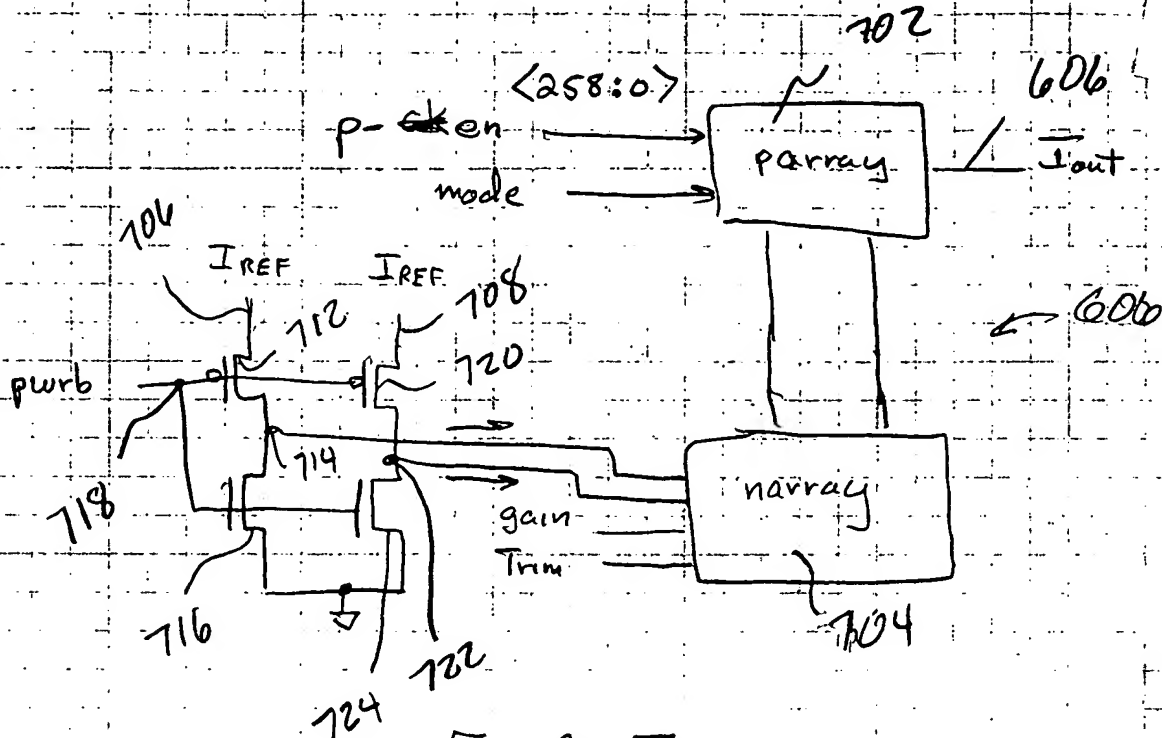 702
<258:0>
606
p-en
parray
Iout
mode
706
IREF
IREF
708
712
606
720
pwrb
714
718
narray
gain
Trim
716
704
722
724